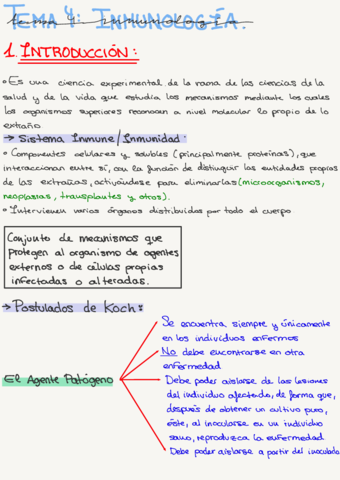 TEMA 4: INMUNOLOGÍA.
1. INTRODUCCIÓN:
• Es una ciencia experimental de la rama de las ciencias de la
salud y de la vida que estudia los mecanismos mediante los cuales
los organismos superiores reconocen a nivel molecular lo propio de lo
extraño
→ Sistema Inmune/Inmunidad:
• Componentes celulares y solubles (principalmente proteínas), que
interaccionan entre sí, con la función de distinguir las entidades propias
de las extrañas, activándose para eliminarlas (microorganismos,
neoplasias, transplantes y otros).
• Intervienen varios órganos distribuidos por todo el cuerpo
Conjunto de mecanismos que
protegen al organismo de agentes
externos o de células propias
infectadas o alteradas.
→ Postulados de Koch:
El Agente Patógeno
Se encuentra siempre y únicamente
en los individuos enfermos
No debe encontrarse en otra
enfermedad
Debe poder aislarse de las lesiones
del individuo afectado, de forma que,
después de obtener un cultivo puro,
éste, al inocularse en un individuo
sano, reproduzca la enfermedad
Debe poder aislarse a partir del inoculado